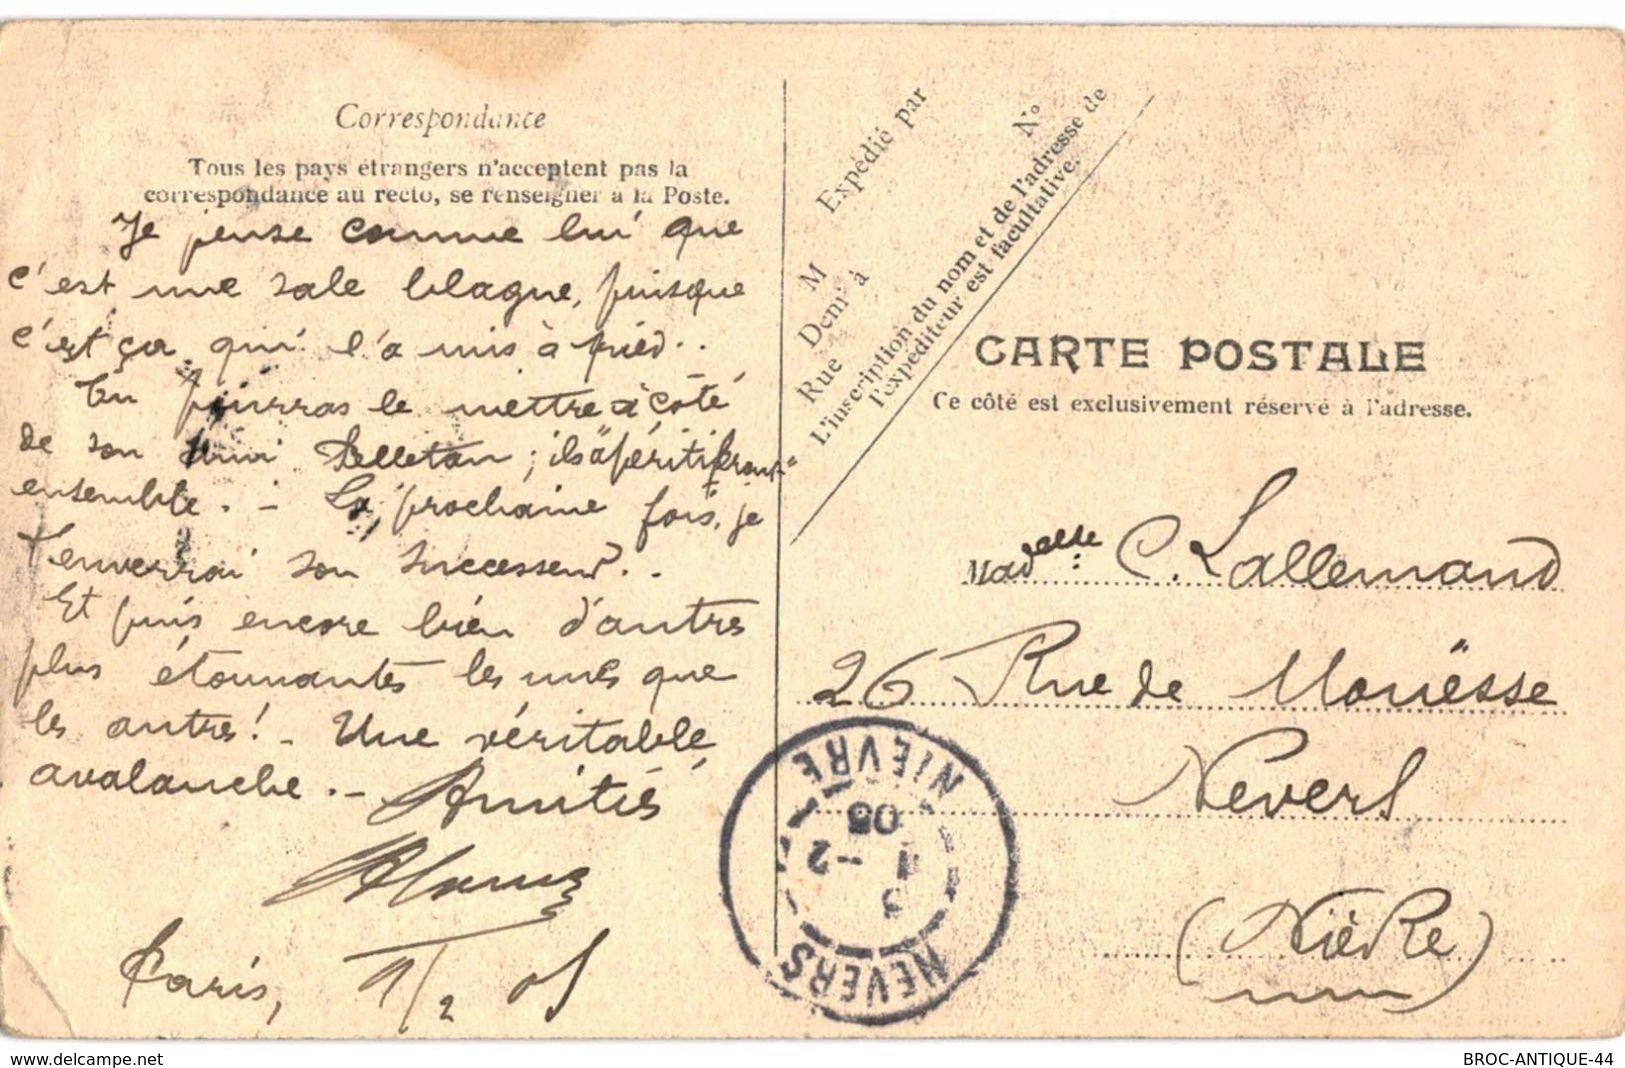 Correspondance
Tous les pays étrangers n'acceptent pas la
correspondance au recto, se renseigner à la Poste.
Je pense comme lui que
c'est une sale blague, puisque
c'est ça qui l'a mis à pied..
Tu pourras le mettre à côté
de son ami Pelletan ; ils "apéritifront"
ensemble. - La prochaine fois, je
t'enverrai son successeur..
Et puis encore bien d'autres
plus étonnantes les unes que
les autres! - Une véritable
avalanche. - Amitiés
Paris, 1/2 05
M Expédié par
Demt à
Rue
N°
L'inscription du nom et de l'adresse de
l'expéditeur est facultative.
CARTE POSTALE
Ce côté est exclusivement réservé à l'adresse.
Madelle C. Lallemand
26 Rue de Mouësse
Nevers
(Nièvre)
NEVERS
1 -2
05
NIEVRE
www.delcampe.net
BROC-ANTIQUE-44